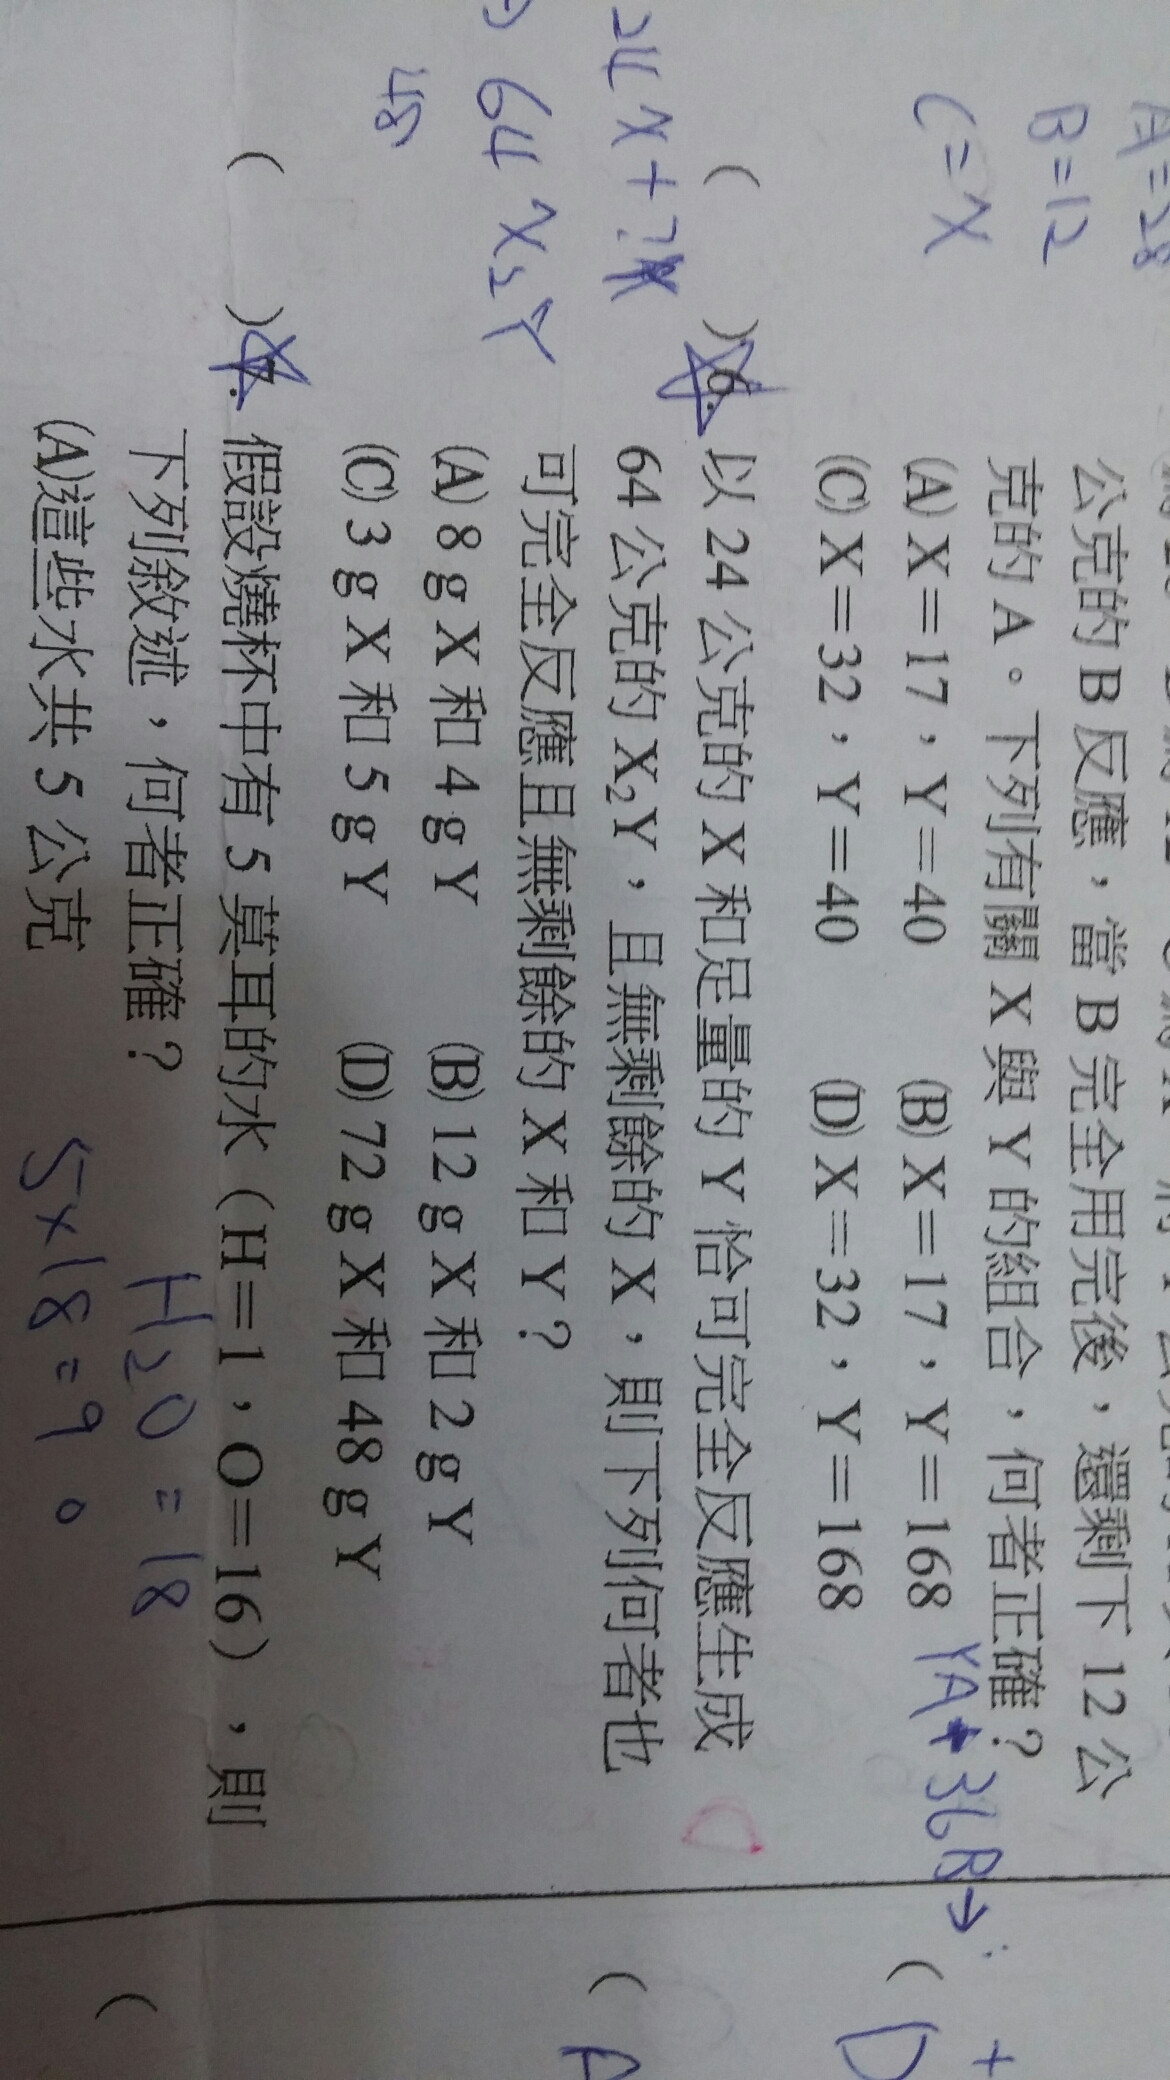 A=28
B=12
C=X
公克的B反應，當B完全用完後，還剩下12公
克的A。下列有關X與Y的組合，何者正確？
(A) X=17，Y=40 (B) X=17，Y=168
(C) X=32，Y=40 (D) X=32，Y=168
YA+36B→
( )6. 以24公克的X和足量的Y恰可完全反應生成
64公克的X₂Y，且無剩餘的X，則下列何者也
可完全反應且無剩餘的X和Y？
(A) 8 g X和4 g Y (B) 12 g X和2 g Y
(C) 3 g X和5 g Y (D) 72 g X和48 g Y
24X+?
64X₂Y
48
C
( )7. 假設燒杯中有5莫耳的水（H=1，O=16），則
下列敘述，何者正確？
H₂O=18
(A)這些水共5公克
5×18=90
+
( D
( A
(